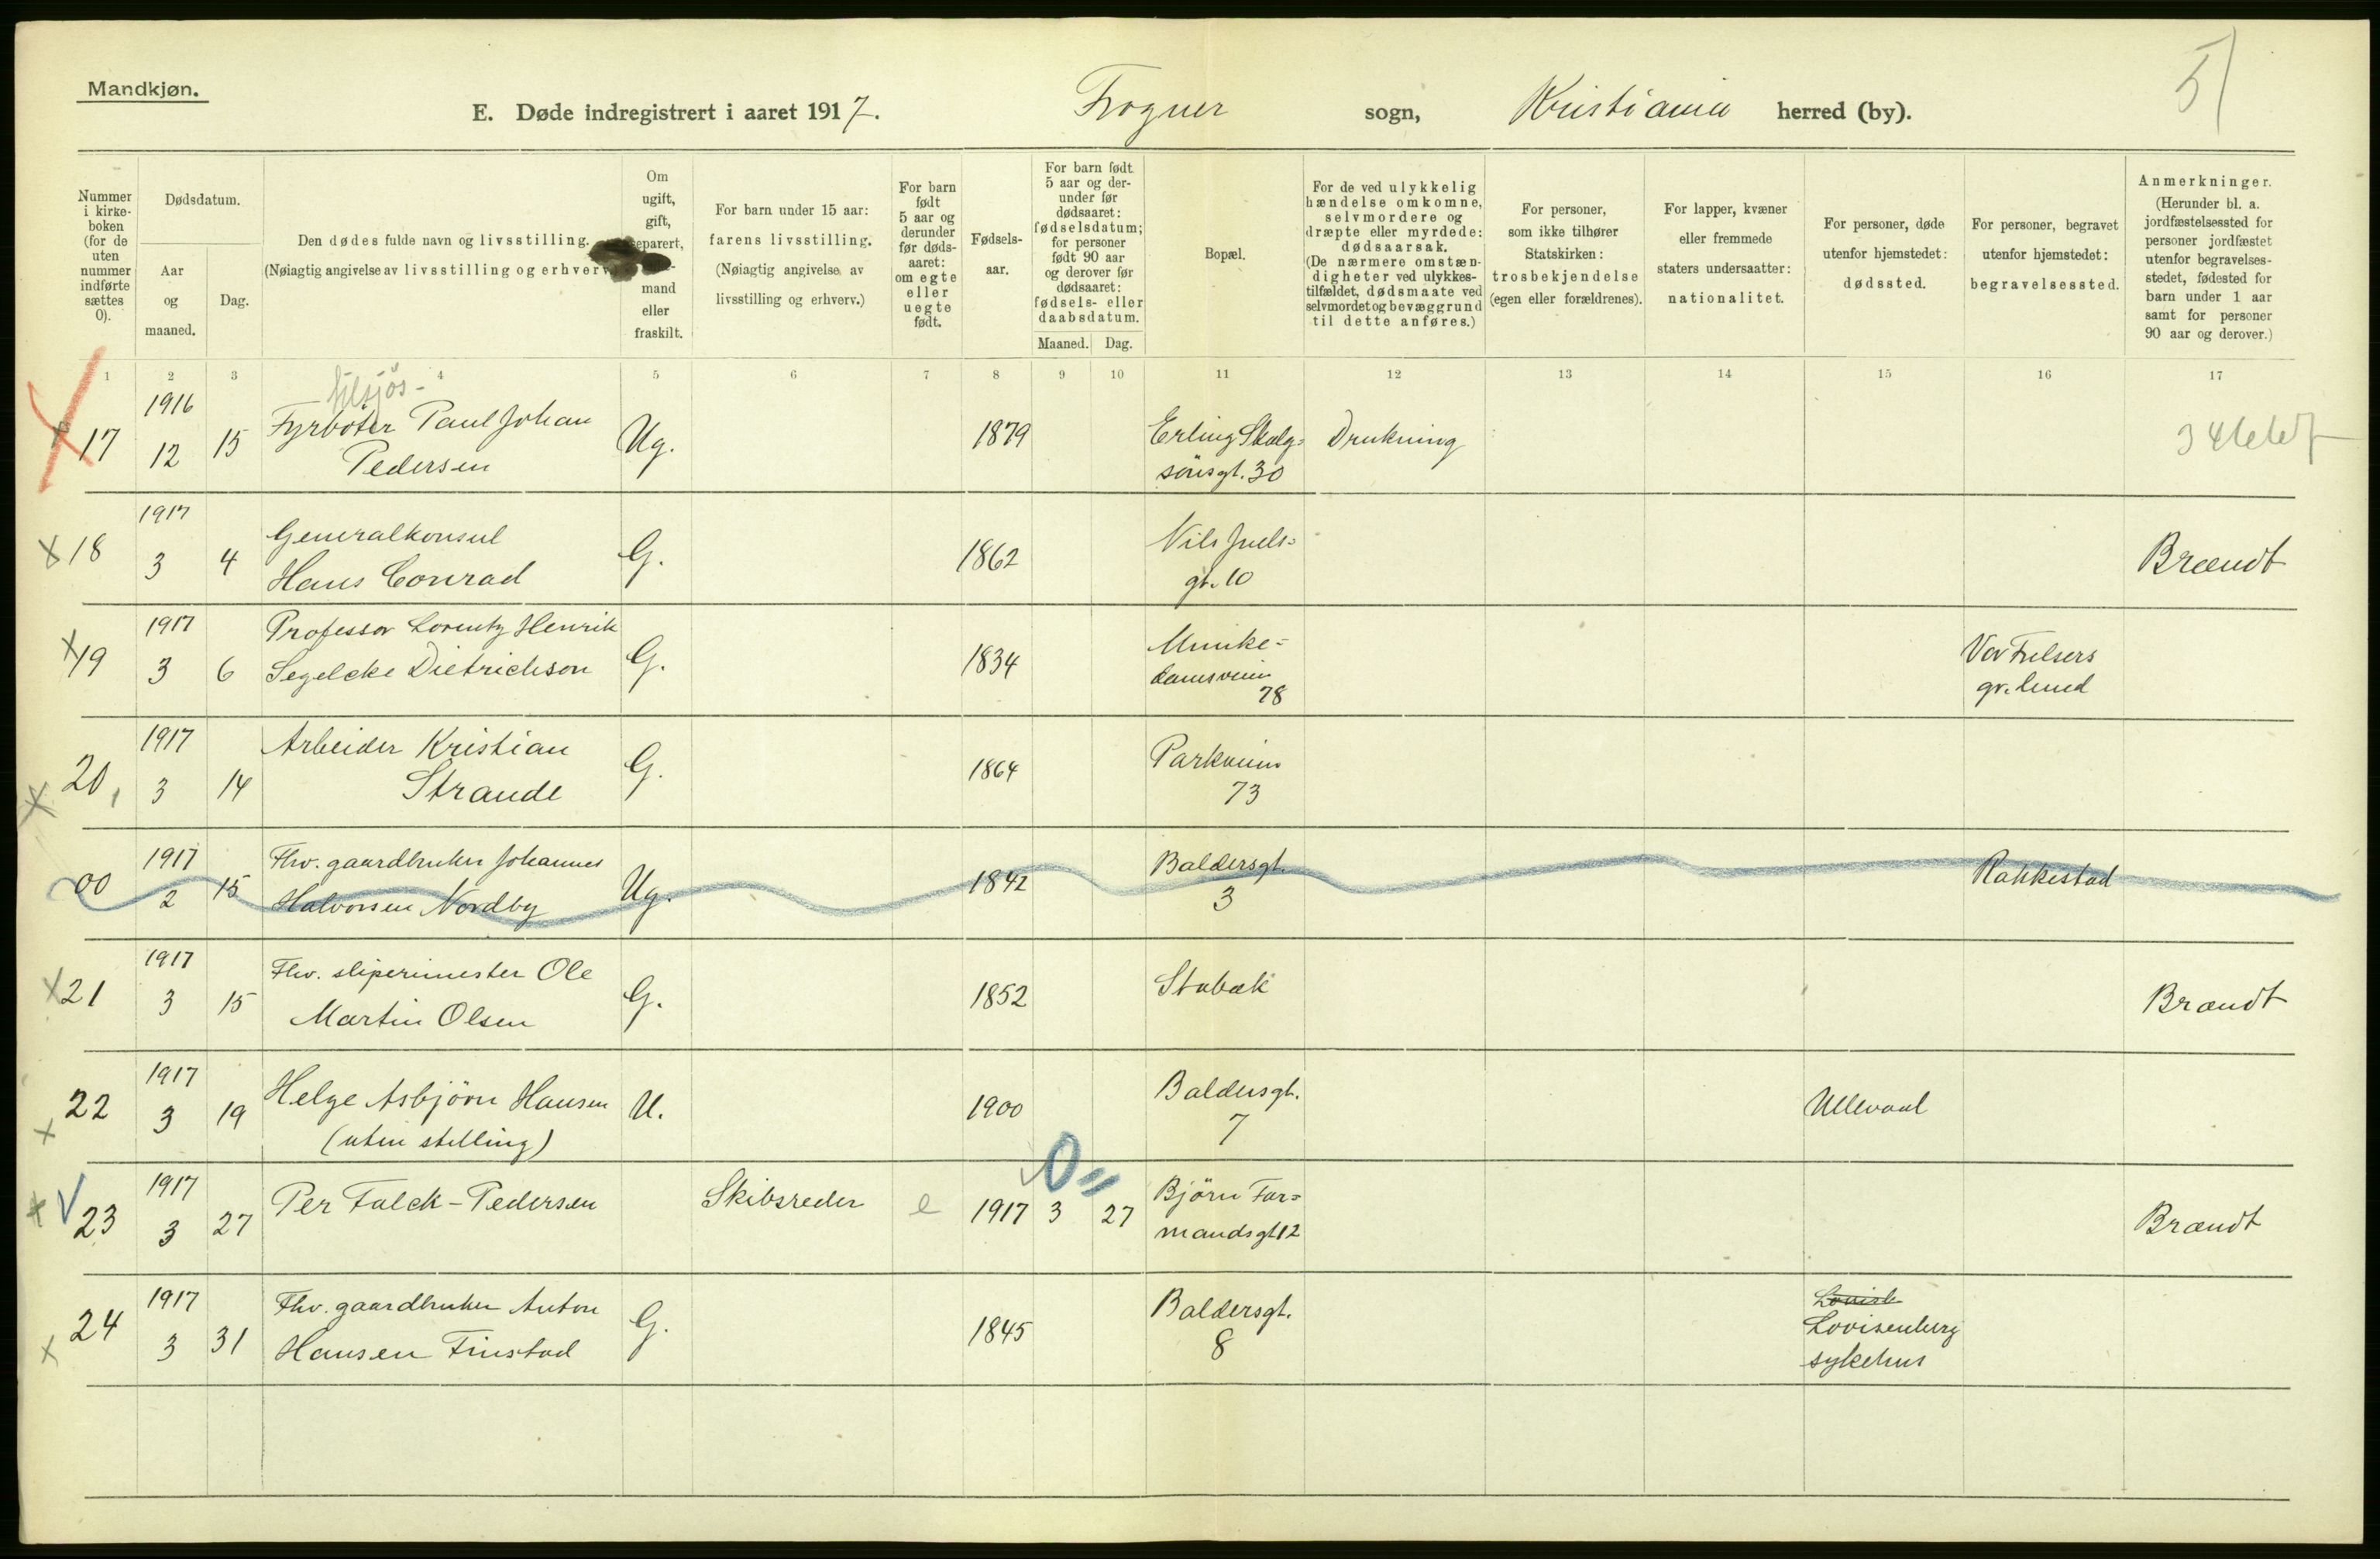 Mandkjøn.
5
E. Døde indregistrert i aaret 1917.
Frogner sogn, Kristiania herred (by).
Nummer i kirke-boken (for de uten nummer indførte sættes 0).
Dødsdatum.
Aar og maaned.
Dag.
Den dødes fulde navn og livsstilling.
(Nøiagtig angivelse av livsstilling og erhverv.)
Om ugift, gift, separert, mand eller fraskilt.
For barn under 15 aar:
farens livsstilling.
(Nøiagtig angivelse av
livsstilling og erhverv.)
For barn født 5 aar og derunder før døds-aaret: om egte eller uegte født.
Fødsels-aar.
For barn født 5 aar og der-under før dødsaaret: fødselsdatum; for personer født 90 aar og derover før dødsaaret: fødsels- eller daabsdatum.
Maaned. Dag.
Bopæl.
For de ved ulykkelig hændelse omkomne, selvmordere og dræpte eller myrdede: dødsaarsak. (De nærmere omstæn-digheter ved ulykkes-tilfældet, dødsmaate ved selvmordet og bevæggrund til dette anføres.)
For personer, som ikke tilhører Statskirken: trosbekjendelse (egen eller forældrenes).
For lapper, kvæner eller fremmede staters undersaatter: nationalitet.
For personer, døde utenfor hjemstedet: dødssted.
For personer, begravet utenfor hjemstedet: begravelsessted.
Anmerkninger. (Herunder bl. a. jordfæstelsessted for personer jordfæstet utenfor begravelses-stedet, fødested for barn under 1 aar samt for personer 90 aar og derover.)
1 2 3 4 5 6 7 8 9 10 11 12 13 14 15 16 17
tilsjøs-
17 1916 12 15 Fyrböter Paul Johan
Pedersen Ug. 1879 Erling Skalg=
sönsgt. 30 Drukning
18 1917 3 4 Generalkonsul
Hans Conrad G. 1862 Nils Juels=
gt. 10 Brandt
19 1917 3 6 Professor Lorentz Henrik
Segelcke Dietrichson G. 1834 Munke=
damsveien
78 Vor Frelsers
gr. lund
20, 1917 3 14 Arbeider Kristian
Strande G. 1864 Parkveien
73
00 1917 2 15 Fhv. gaardbruker Johannes
Halvorsen Nordby Ug. 1842 Baldersgt.
3 Rakkestad
21 1917 3 15 Fhv. sliperimester Ole
Martin Olsen G. 1852 Stabæk Brandt
22 1917 3 19 Helge Asbjörn Hansen
(uten stilling) U. 1900 Baldersgt.
7 Ullevaal
23 1917 3 27 Per Falck-Pedersen Skibsreder e 1917 3 27 Björn Far=
mandsgt 12 Brandt
24 1917 3 31 Fhv. gaardbruker Anton
Hansen Finstad G. 1845 Baldersgt.
8 Louisb
Lovisenberg
sykehus